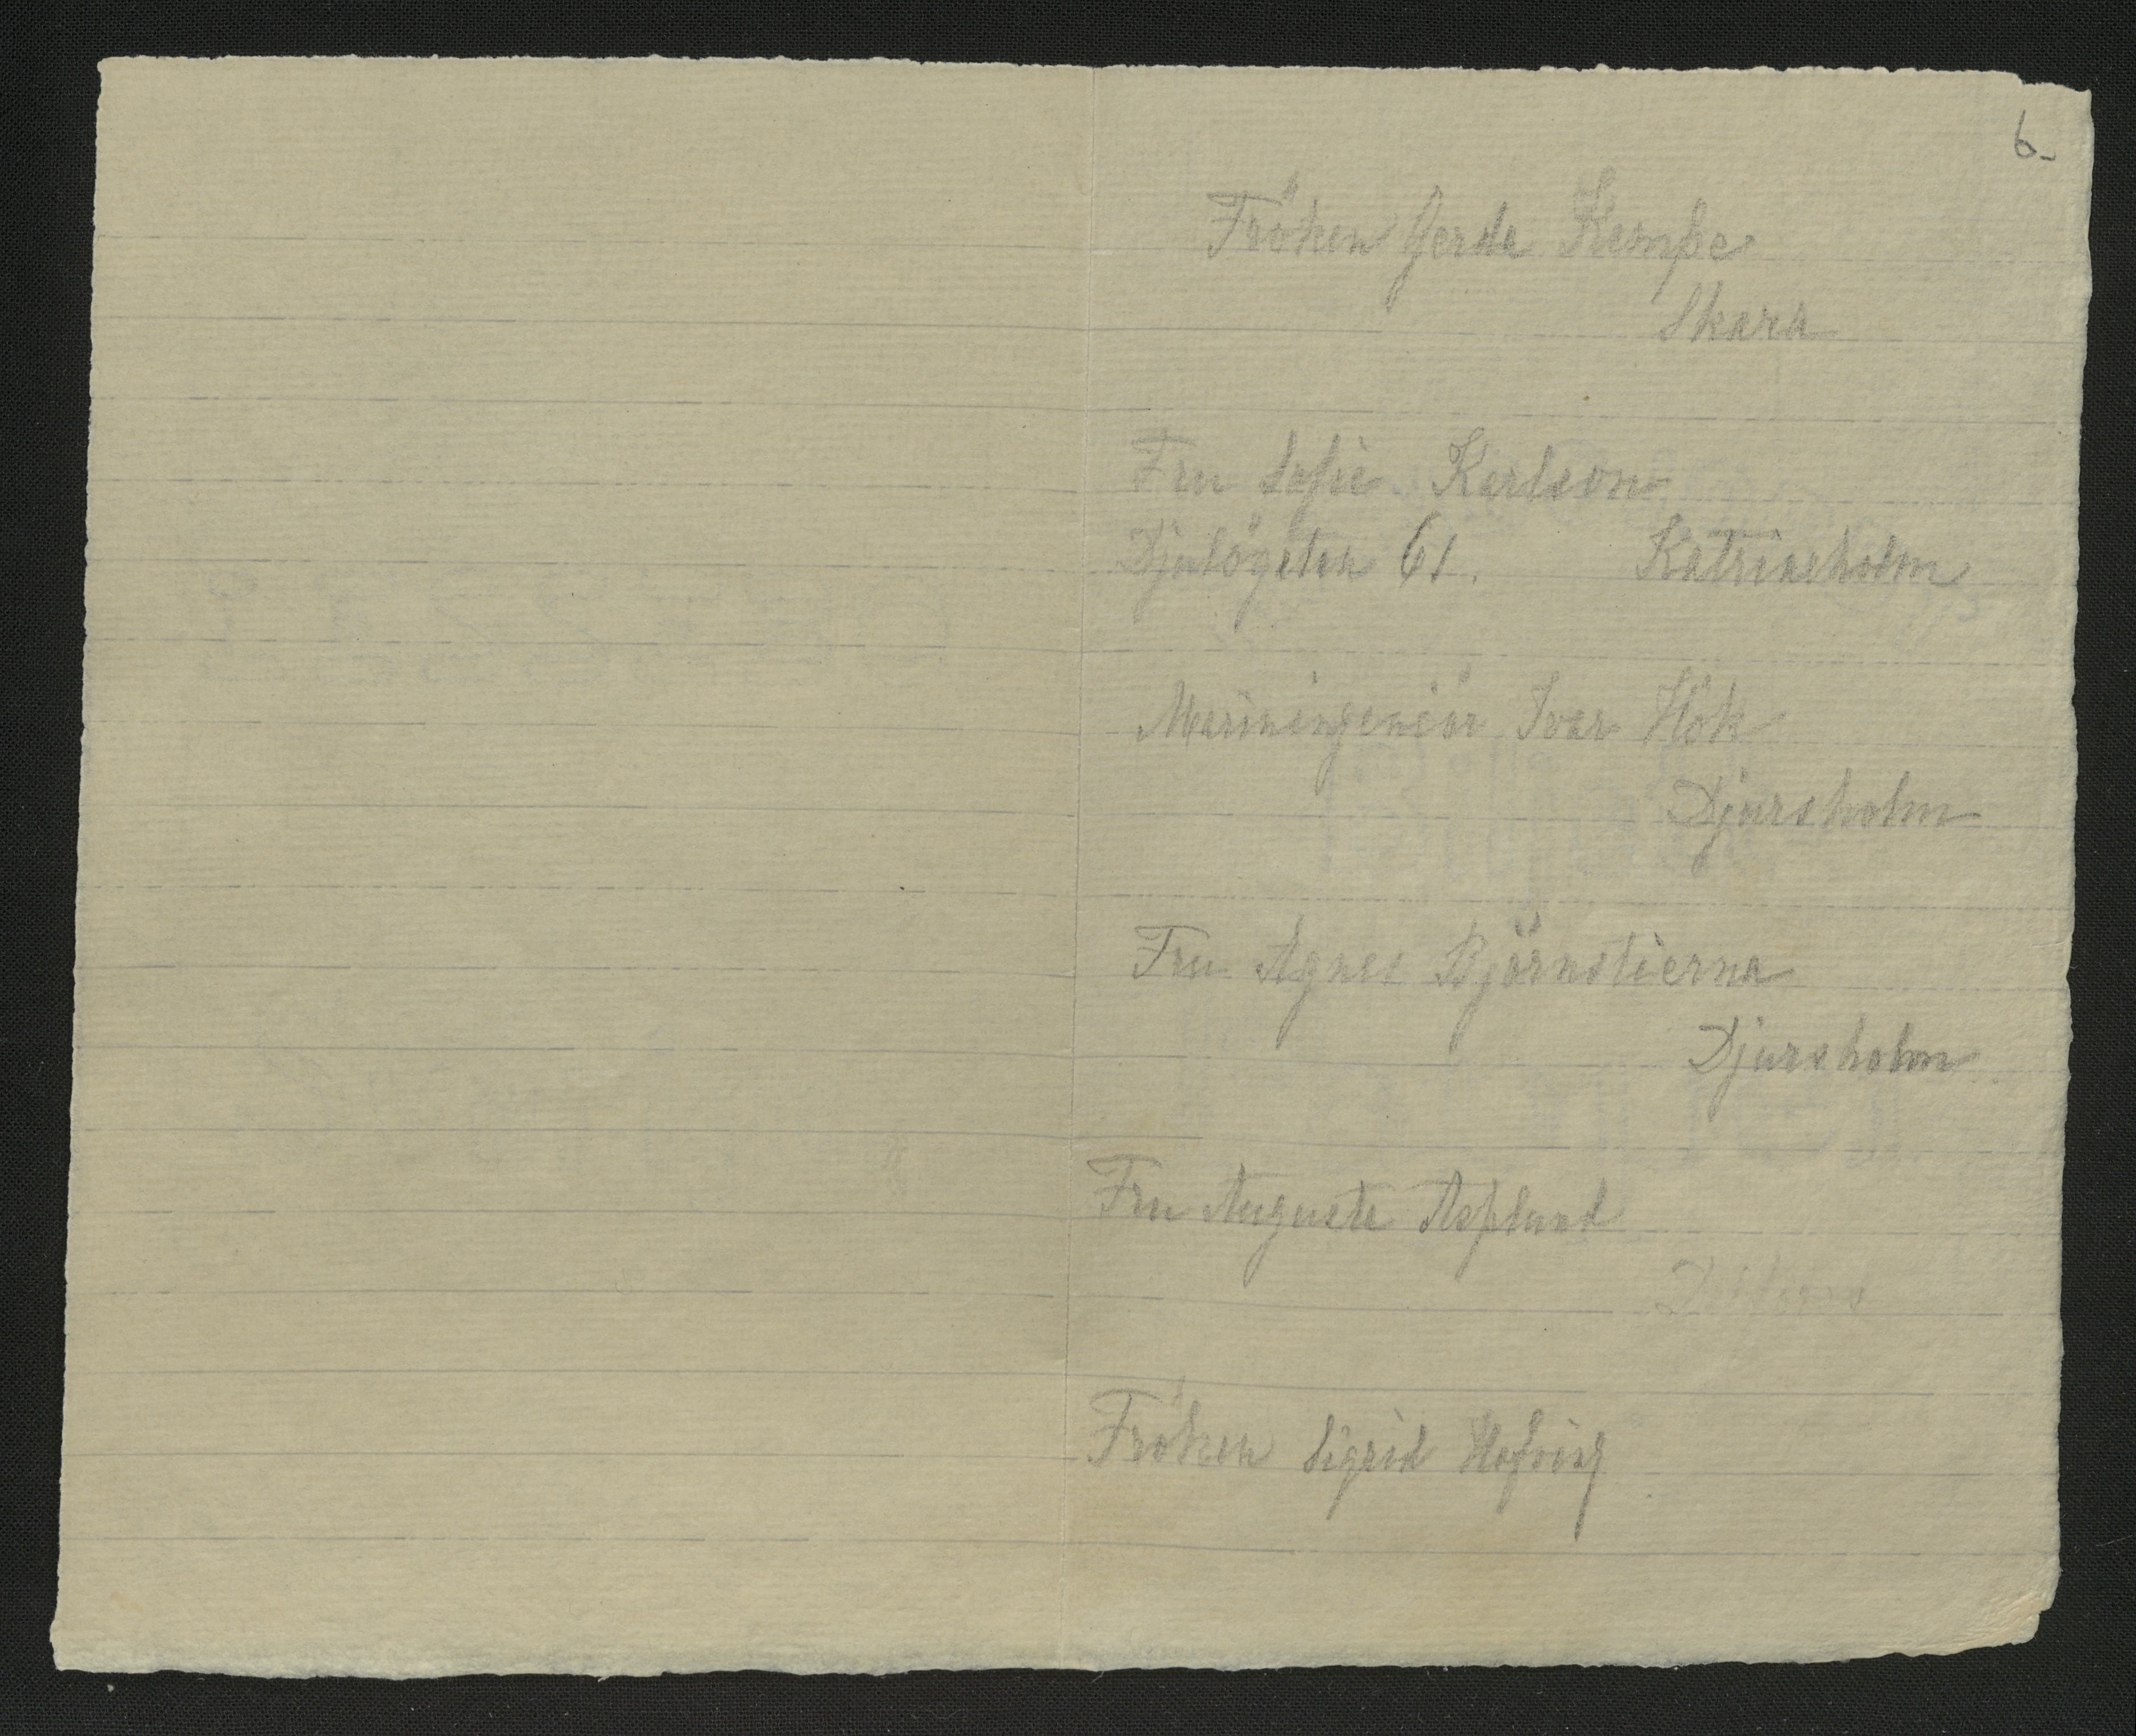 6-
Fröken Gerda Kempe
Skara
Fru Sofie Karlson
Djulögatan 61. Katrineholm
Mariningeniör Ivar Hök
Djursholm
Fru Agnes Björnstierna
Djursholm
Fru Augusta Asplund
Fröken Sigrid Hofving